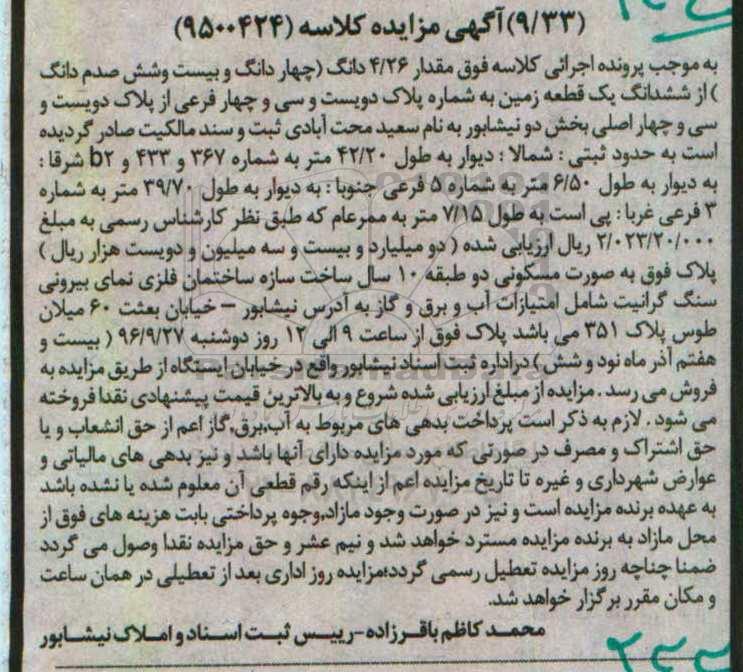 (۹/۳۳)آگهی مزایده کلاسه (۹۵۰۰۴۲۴)
به موجب پرونده اجرائی کلاسه فوق مقدار ۴/۲۶ دانگ (چهار دانگ و بیست وشش صدم دانگ
) از ششدانگ یک قطعه زمین به شماره پلاک دویست و سی و چهار فرعی از پلاک دویست و
سی و چهار اصلی بخش دو نیشابور به نام سعید محت آبادی ثبت و سند مالکیت صادر گردیده
است به حدود ثبتی : شمالا : دیوار به طول ۴۲/۲۰ متر به شماره ۳۶۷ و ۴۳۳ و b۲ شرقا :
به دیوار به طول ۶/۵۰ متر به شماره ۵ فرعی جنوبا : به دیوار به طول ۳۹/۷۰ متر به شماره
۳ فرعی غربا : پی است به طول ۷/۱۵ متر به ممرعام که طبق نظر کارشناس رسمی به مبلغ
۲/۰۲۳/۲۰/۰۰۰ ریال ارزیابی شده ( دو میلیارد و بیست و سه میلیون و دویست هزار ریال )
پلاک فوق به صورت مسکونی دو طبقه ۱۰ سال ساخت سازه ساختمان فلزی نمای بیرونی
سنگ گرانیت شامل امتیازات آب و برق و گاز به آدرس نیشابور – خیابان بعثت ۶۰ میلان
طوس پلاک ۳۵۱ می باشد پلاک فوق از ساعت ۹ الی ۱۲ روز دوشنبه ۹۶/۹/۲۷ ( بیست و
هفتم آذر ماه نود و شش ) دراداره ثبت اسناد نیشابور واقع در خیابان ایستگاه از طریق مزایده به
فروش می رسد . مزایده از مبلغ ارزیابی شده شروع و به بالاترین قیمت پیشنهادی نقدا فروخته
می شود . لازم به ذکر است پرداخت بدهی های مربوط به آب،برق،گاز اعم از حق انشعاب و یا
حق اشتراک و مصرف در صورتی که مورد مزایده دارای آنها باشد و نیز بدهی های مالیاتی و
عوارض شهرداری و غیره تا تاریخ مزایده اعم از اینکه رقم قطعی آن معلوم شده یا نشده باشد
به عهده برنده مزایده است و نیز در صورت وجود مازاد،وجوه پرداختی بابت هزینه های فوق از
محل مازاد به برنده مزایده مسترد خواهد شد و نیم عشر و حق مزایده نقدا وصول می گردد
ضمنا چناچه روز مزایده تعطیل رسمی گردد؛مزایده روز اداری بعد از تعطیلی در همان ساعت
و مکان مقرر برگزار خواهد شد.
محمد کاظم باقرزاده-رییس ثبت اسناد و املاک نیشابور